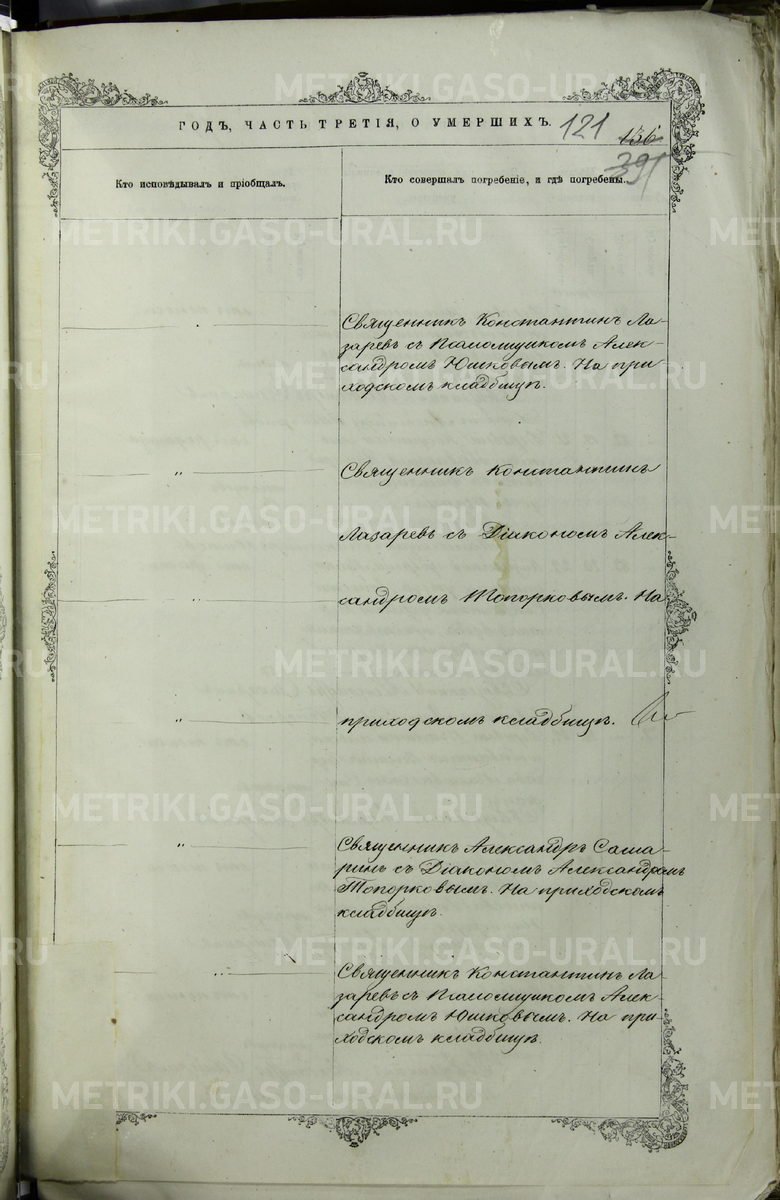 ГОДЪ, ЧАСТЬ ТРЕТІЯ, О УМЕРШИХЪ. 121 136
391
Кто исповѣдывалъ и пріобщалъ.
Кто совершалъ погребеніе, и гдѣ погребены.
Священникъ Константинъ Ла-
заревъ съ Псаломщикомъ Алек-
сандромъ Юшковымъ. На при
ходскомъ кладбищѣ.
„
Священникъ Константинъ
Лазаревъ съ Діакономъ Алек-
„
сандромъ Топорковымъ. На
„
приходскомъ кладбищѣ.
„
Священникъ Александръ Сама-
ринъ съ Діакономъ Александромъ
Топорковымъ. На приходскомъ
кладбищѣ.
„
Священникъ Константинъ Ла-
заревъ съ Псаломщикомъ Алек-
сандромъ Юшковымъ. На при-
ходскомъ кладбищѣ.
METRIKI.GASO-URAL.RU